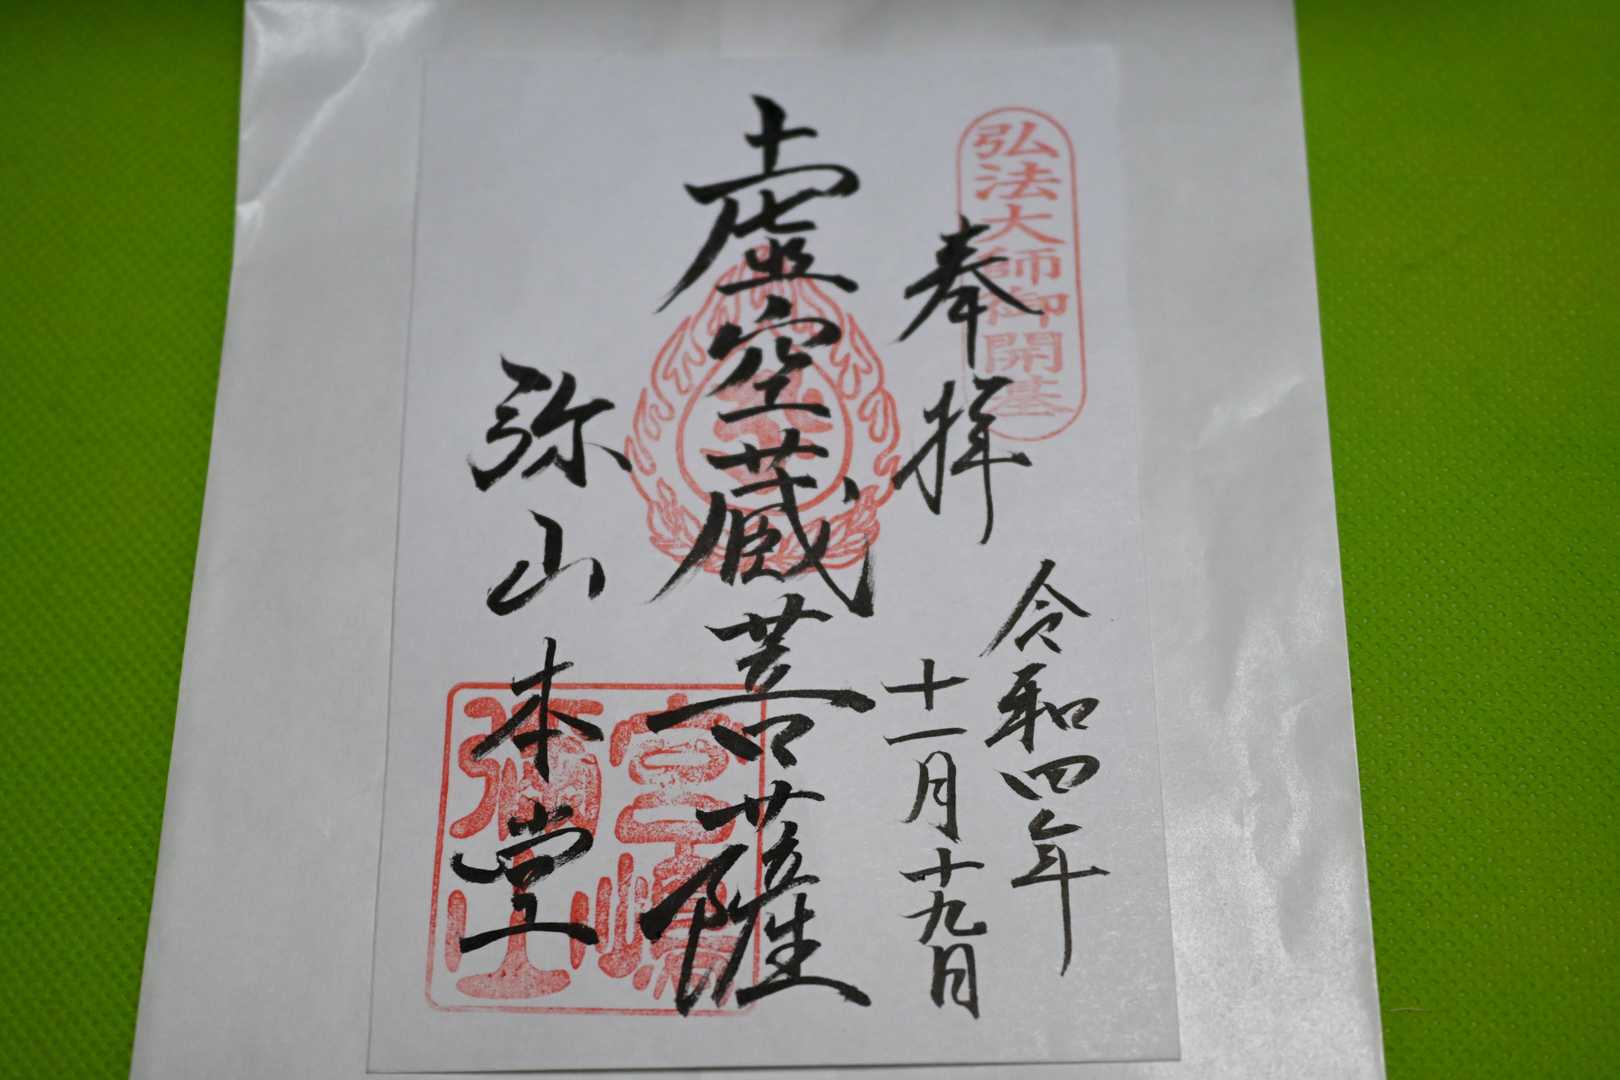 弘法大師御開基
奉拝
令和四年
十一月十九日
虚空蔵菩薩
弥山本堂
宮嶋
彌山